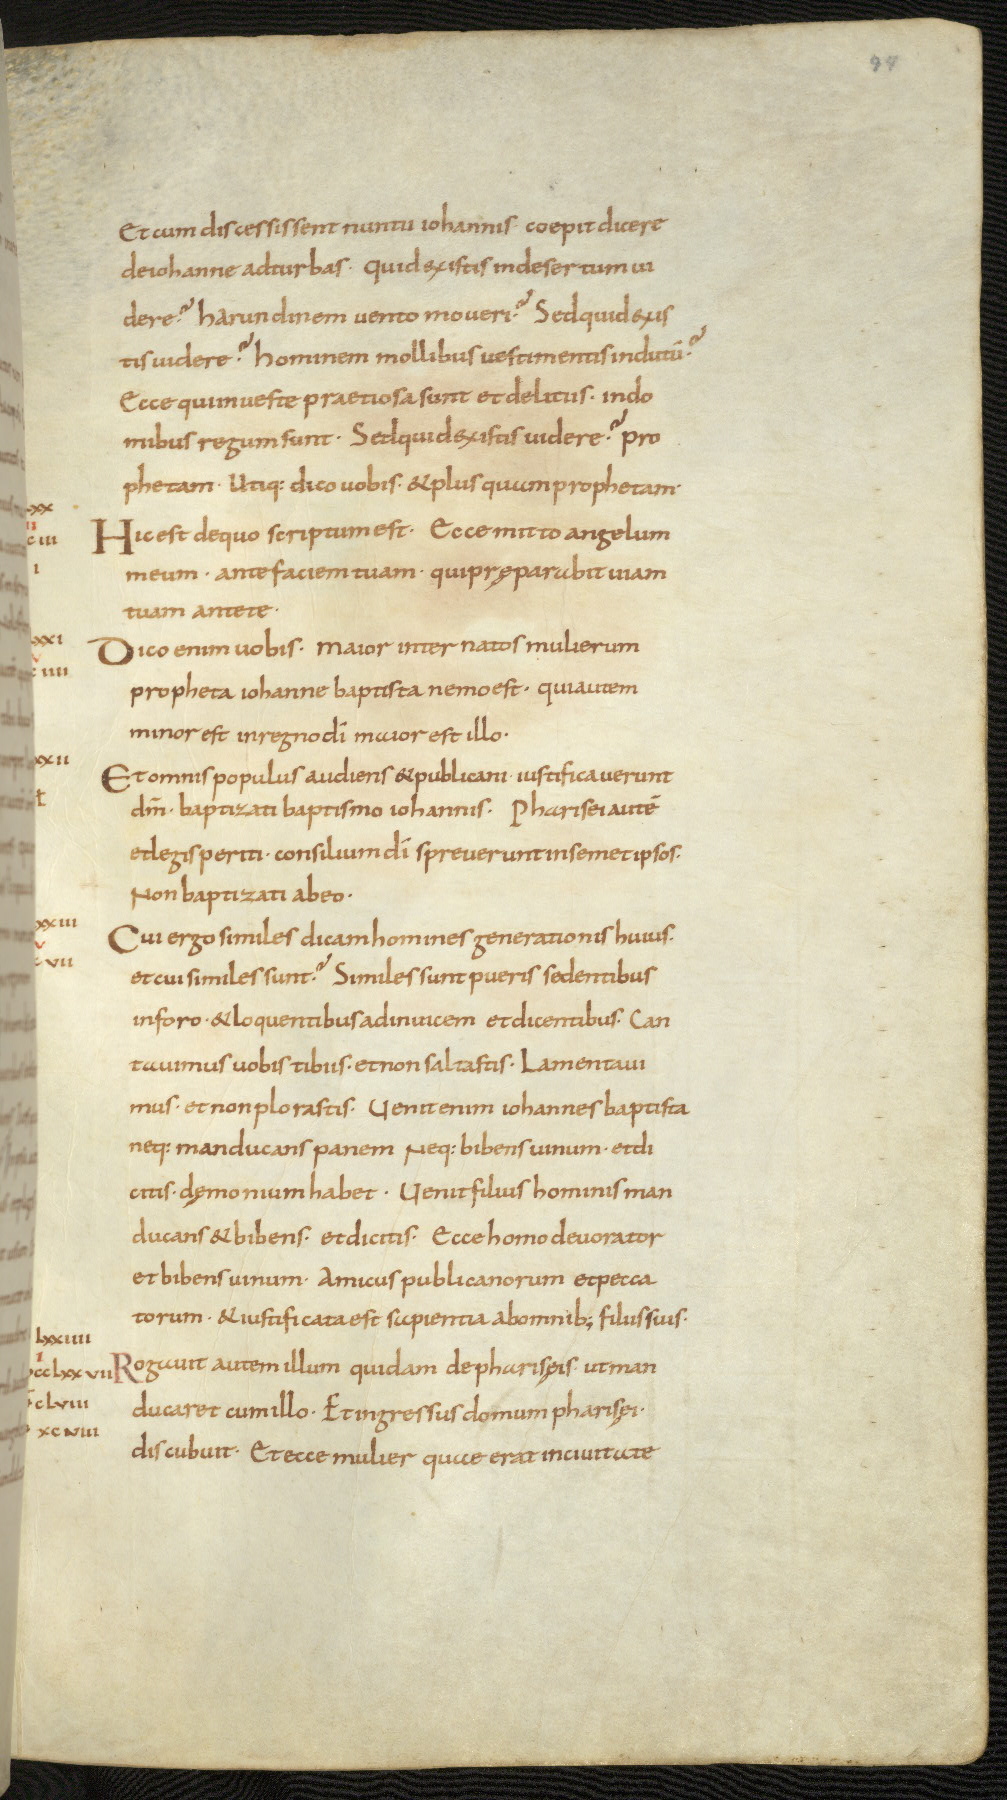 94
Et cum discessissent nuntii iohannis· coepit dicere
de iohanne ad turbas· Quid existis in desertum ui
dere? harundinem vento moveri? Sed quid exis
tis uidere? hominem mollibus vestimentis indutū?
Ecce qui in veste praetiosa sunt et delitiis· in do
mibus regum sunt· Sed quid existis uidere? pro
phetam· Utiq: dico vobis· & plus quam prophetam·
Hic est de quo scriptum est· Ecce mitto angelum
meum· ante faciem tuam· qui pręparabit uiam
tuam ante te·
Dico enim vobis· maior inter natos mulierum
propheta iohanne baptista nemo est· qui autem
minor est in regno dī maior est illo·
Et omnis populus audiens & publicani· iustificaverunt
dm̄· baptizati baptismo iohannis· Pharisei autē
et legis periti· consilium dī spreverunt in semet ipsos·
Non baptizati ab eo·
Cui ergo similes dicam homines generationis huius·
et cui similes sunt? Similes sunt pueris sedentibus
in foro· & loquentibus ad inuicem et dicentibus· Can
tauimus vobis tibiis· et non saltastis· Lamentaui
mus· et non plorastis· Uenit enim iohannes baptista
neq: manducans panem Neq: bibens uinum· et di
citis· dęmonium habet· Uenit filius hominis man
ducans & bibens· et dicitis· Ecce homo devorator
et bibens uinum· Amicus publicanorum et pecca
torum· & iustificata est sapientia ab omnib; filiis suis·
lxxiiii
Rogauit autem illum quidam de pharisęis· ut man
ducaret cum illo· Et ingressus domum pharisęi·
discubuit· Et ecce mulier quae erat in ciuitate